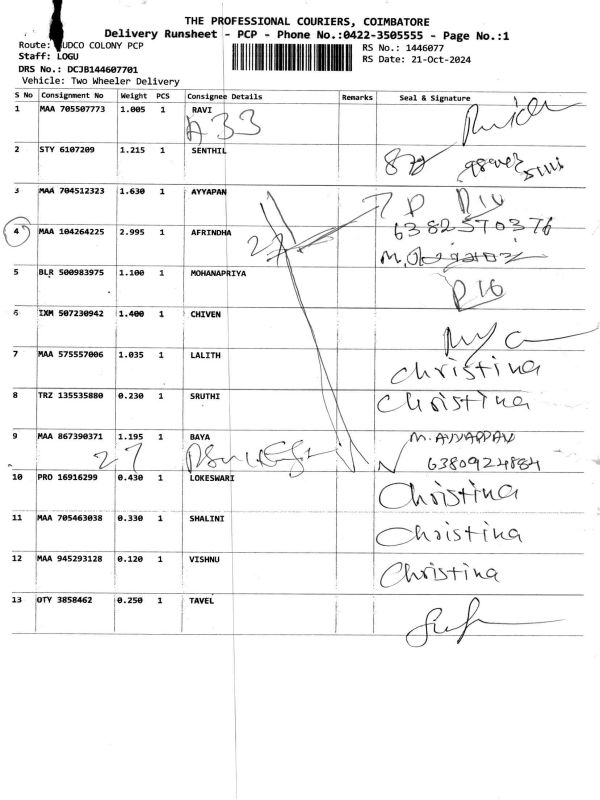 THE PROFESSIONAL COURIERS, COIMBATORE
Delivery Runsheet - PCP - Phone No.:0422-3505555 - Page No.:1
Route: UDCO COLONY PCP
RS No.: 1446077
Staff: LOGU
RS Date: 21-Oct-2024
DRS No.: DCJB144607701
Vehicle: Two Wheeler Delivery
S No Consignment No Weight PCS Consignee Details Remarks Seal & Signature
1 MAA 705507773 1.005 1 RAVI
A33
2 STY 6107209 1.215 1 SENTHIL
3 MAA 704512323 1.630 1 AYYAPAN
4 MAA 104264225 2.995 1 AFRINDHA 6382570376
27
5 BLR 500983975 1.100 1 MOHANAPRIYA
D16
6 IXM 507230942 1.400 1 CHIVEN
7 MAA 575557006 1.035 1 LALITH
Christina
8 TRZ 135535880 0.230 1 SRUTHI
Christina
9 MAA 867390371 1.195 1 BAYA M. AYYAPPAN
27 6380924884
10 PRO 16916299 0.430 1 LOKESWARI
Christina
11 MAA 705463038 0.330 1 SHALINI
Christina
12 MAA 945293128 0.120 1 VISHNU
Christina
13 OTY 3858462 0.250 1 TAVEL